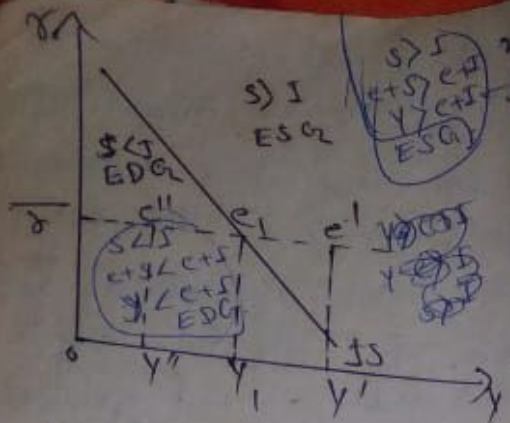 r
S > I
ESG
S > I
c+S > c+I
Y > c+I
ESG
S < I
EDG
r
e''
e1
e'
S < IS
c+y < c+S
y' < c+S
EDG
IS
0
Y''
Y1
Y'
Y